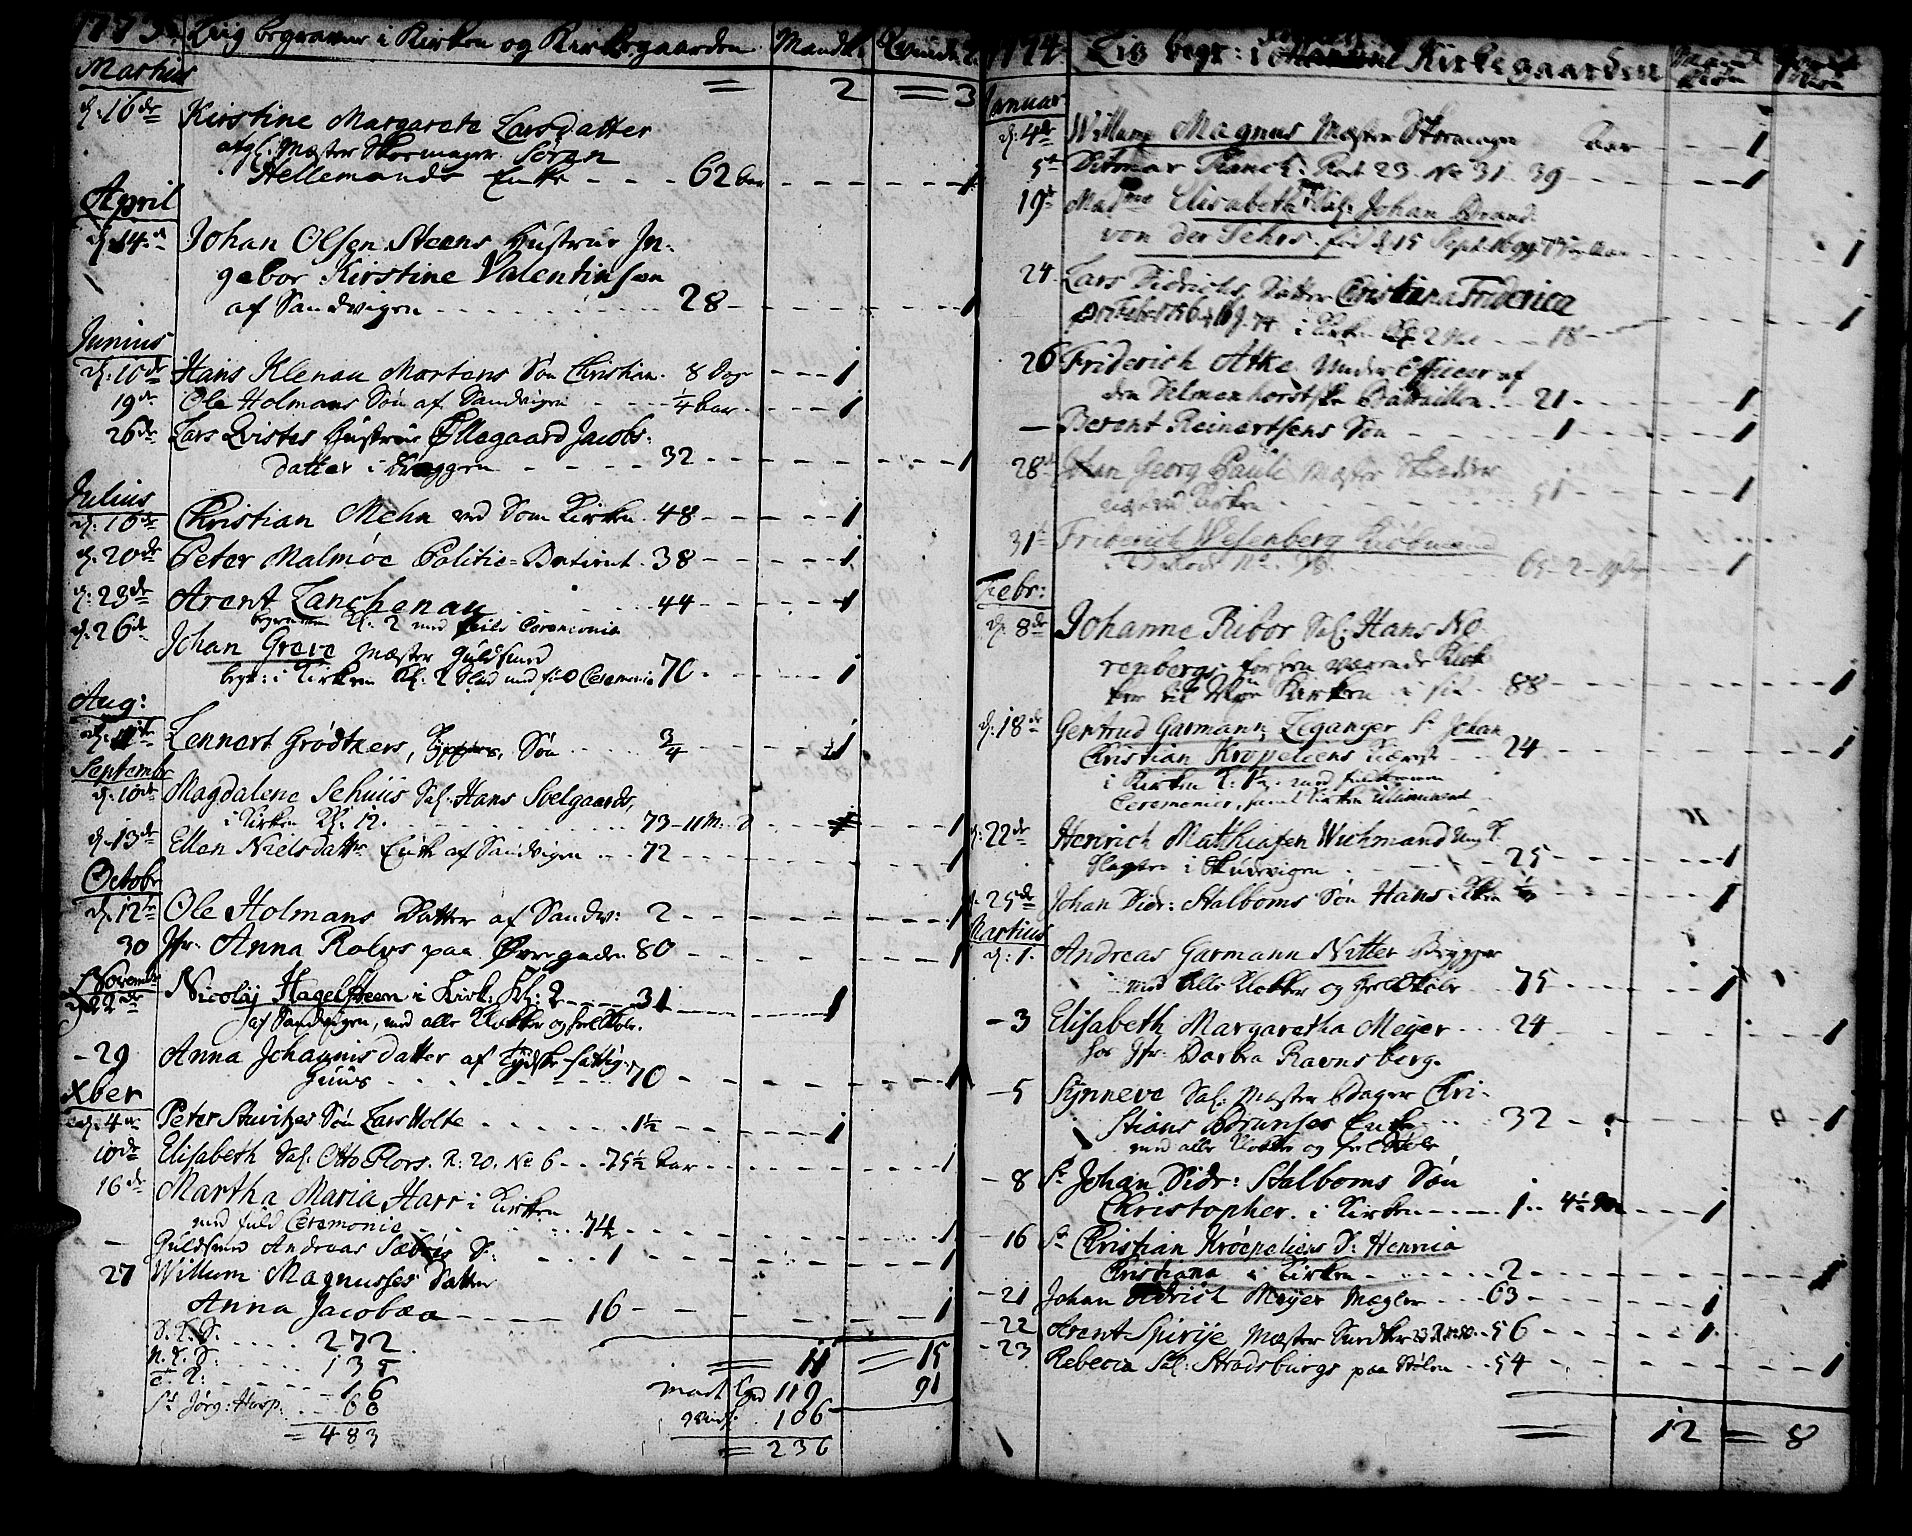 1773. Liig begravne i Kirken og Kirkegaarden Mandk. Qvindk.
Martius = 2 = 3
d. 16de Kirstine Margareta Larsdatter
afgl: Mæster Skoemager Søren
Hellemands Enke - - - 62 aar - - - 1
April
d. 14de Johan Olsen Steens Hustrue In-
gebor Kirstine Valentinsen
af Sandvigen - - - 28 - - - 1
Junius
d. 10de Hans Klenau Mortens Søn Christian. 8 Dage - - - 1
19de Ole Holmans Søn af Sandvigen - - - 1/4 aar - - - 1
26de Lars Qvistes Hustrue Ellegaard Jacobs-
datter i - - - 32 - - - 1
Julius
d. 16de Christian Mehn ved Dom Kirken. 48 - - - 1
d. 20de Peter Malmøe Politie-Betient. 38 - - - 1
d. 23de Arent Lanchenau - - - 44 - - - 1
begraven Kl. 2 med fuld Ceremonie
d. 26de Johan Greve Mæster Guldsmed
begr: i Kirken Kl. 2 Slæt med fuld Ceremonie 70 - - - 1
Aug:
d. 11te Lennert Grødtkers, Søn - - - 3/4 - - - 1
Septembr
d. 10de Magdalene Schuiis Sal. Hans Svelgaards,
i Kirken Kl. 12. - - - 73 - 11 M: - - - 1
d. 13de Ellen Nielsdattr Enke af Sandvigen - - - 72 - - - 1
Octobr
d. 12te Ole Holmans Datter af Sandv: 2 - - - 1
30 Jfr. Anna Rolvs paa Øvregaden 80 - - - 1
Novembr
22de Nicolaj Hagelsteen i Kirk: Kl: 2 - - - 31 - - - 1
af Sandvigen, med alle Klokker og heel Skole.
- 29 Anna Johannisdatter af Tydske fattig-
huus - - - 70 - - - 1
Xber
d. 4de Peter Stuvitzes Søn Lars Holte - - - 1½ - - - 1
10de Elisabeth Sal. Otto Rors. R: 20. No 6 - - - 75½ aar - - - 1
16de Martha Maria Harr i Kirken
med fuld Ceremonie - - - 74 - - - 1
- Guldsmed Andreas Sæbøes D. - - - 1 - - - 1
27 Willum Magnusses Datter
Anna Jacobæa - - - 16 - - - 1
D. K. S. - - - 272
N. K. S: - - - 135 = 11 = 15
C. K: - - - 16 Mandk. 119 91
St Jørg: Hosp. - - - 60 Qvindk. 106
= 483 = 236
1774 Lig begr: i Kirkegaarden
Januar
d. 4de Willum Magnus Mæster Skoemager aar - - - 1
5te Ditmar Planck: Rod 23 No 31 39 - - - 1
19de Madme Elisabeth Sal. Johan Brand
von der Fehrs. fød d. 15 Sept. 1699 aar - - - 1
24 Lars Didrichs Datter Christiana Friderica
i Kirken Kl. 2 - - - 18 - - - 1
26 Friderich Atke Under Officer af
den Delmenhorstske Bataillon. - - 21 - - - 1
- Berent Reinertsens Søn - - - 1 - - - 1
28de Johan Georg Pauli Mæster Skrædder
Kirken - - - 51 - - - 1
31te Friderich Wesenberg Kiøbmand
- - - 1
Febr:
d. 8de Johanne Ribor Sal: Hans No
renbergs forhen værende Klok
ker til Kirken - - - 88 - - - 1
d. 18de Gertrud Garmann Leganger Sr Johan
Christian Krøpeliens Kiereste - - - 24 - - - 1
i Kirken K. 1½ med fuldkommen
Ceremonier, samt Kirken illumineret
d. 22de Henrich Mathiasen Wichmand Ung K.
Slagter i Skudevigen - - - 25 - - - 1
d. 25de Johan Didr: Stalboms Søn Hans i Kirken ½ - - - 1
Martius
d. 1. Andreas Garmann Nitter Brygger
med alle Klokker og heel Skole - - - 75 - - - 1
- 3 Elisabeth Margaretha Meyer - - - 24 - - - 1
hos Jfr. Barbra Ravnsberg.
- 5 Synneve Sal: Mæster Bager Chri-
stians Brunses Enke - - - 32 - - - 1
med alle Klokker og heel Skole
- 8 Sr Johan Didr: Stalboms Søn
Christopher i Kirken - - - 1 - - 4½ Mdr - - - 1
- 16 Sr Christian Krøepeliens D: Henrica
Christiana i Kirken - - - 2 - - - 1
- 21 Johan Didrich Meyer Mægler - - - 63 - - - 1
- 22 Arent Spirije Mæster Snedker - - 56 - - - 1
- 23 Rebecca Sal: Stradsburgs paa Stølen - - 54 - - - 1
= 12 = 8